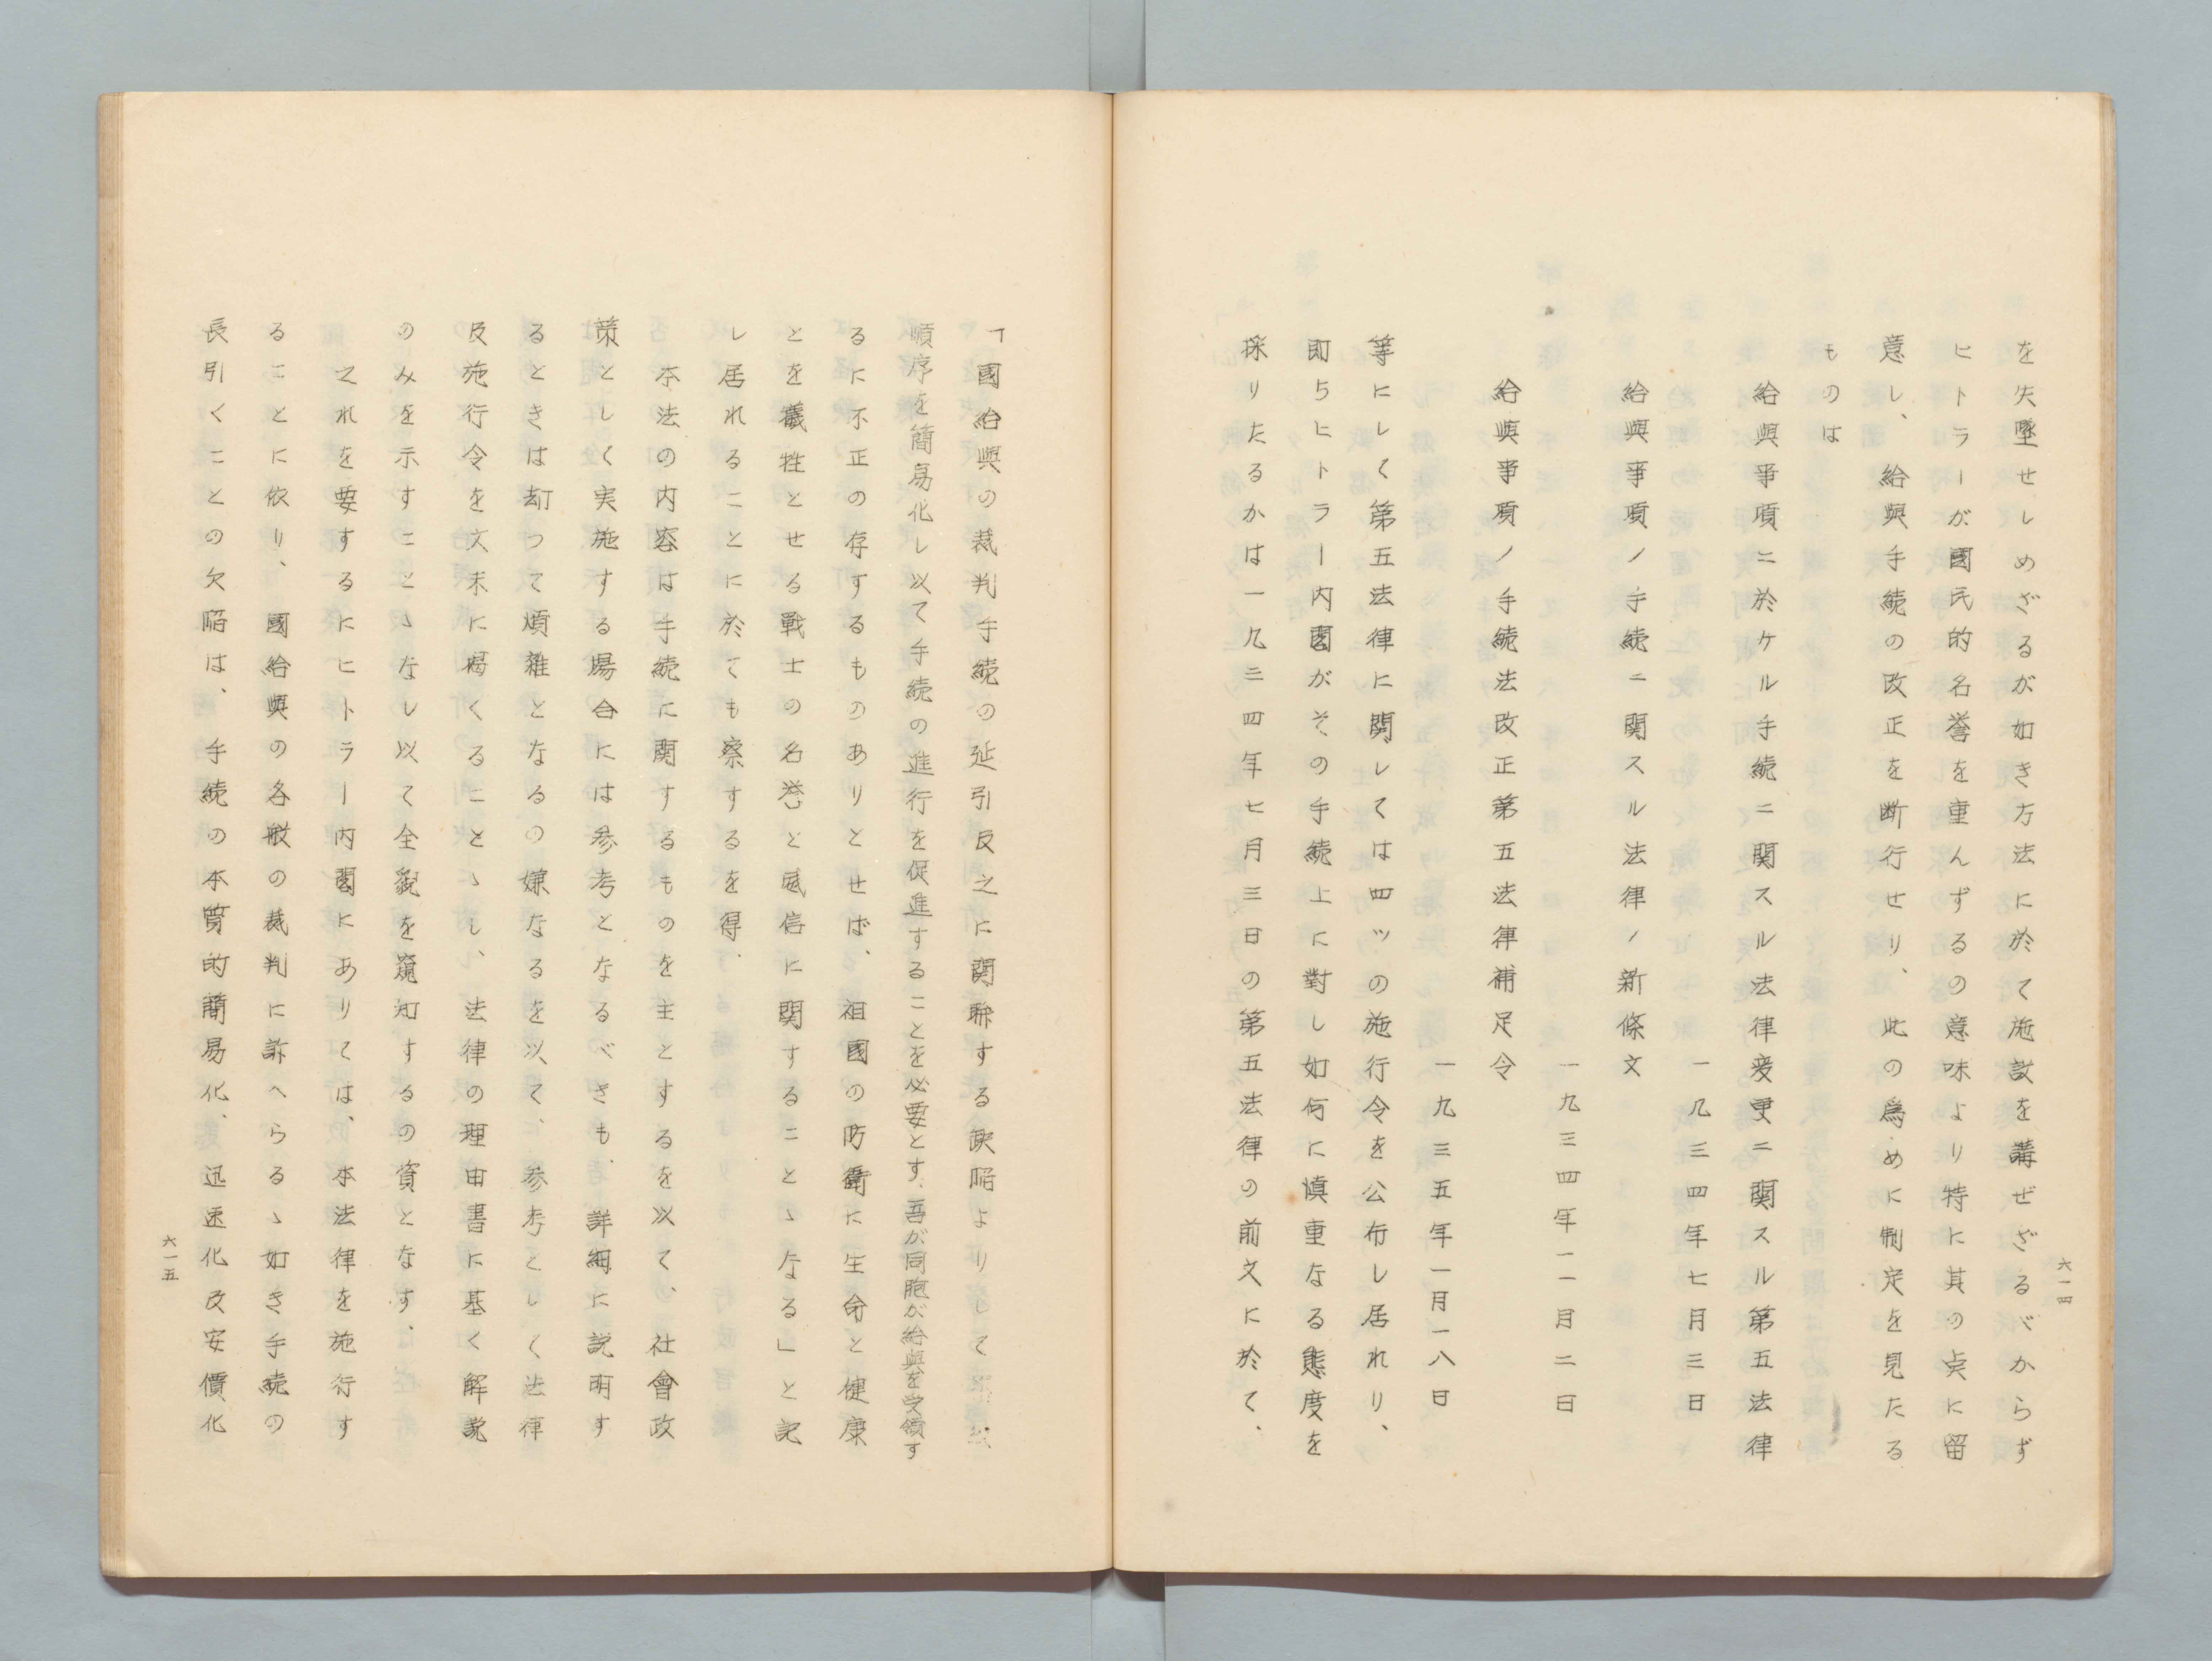 六一四
を失墜せしめざるが如き方法に於て施設を講ぜざるべからず
ヒトラーが國民的名誉を重んずるの意味より特に其の点に留
意し、給與手続の改正を断行せり、此の為めに制定を見たる
ものは
給與事項ニ於ケル手続ニ関スル法律変更ニ関スル第五法律
一九三四年七月三日
給與事項ノ手続ニ関スル法律ノ新條文
一九三四年一一月二日
給與事項ノ手続法改正第五法律補足令
一九三五年一月一八日
等にして第五法律に関しては四ツの施行令を公布し居れり、
即ちヒトラー内閣がその手続上に對し如何に慎重なる態度を
採りたるかは一九三四年七月三日の第五法律の前文に於て、
「國給與の裁判手続の延引及之に関聯する缺陥よりして
順序を簡易化し以て手続の進行を促進することを必要とす、吾が同胞が給與を受領す
るに不正の存するものありとせば、祖國の防衛に生命と健康
とを犠牲とせる戰士の名誉と威信に関することゝなる」と記
し居れることに於ても察するを得、
本法の内容は手続に関するものを主とするを以て、社會政
策として実施する場合には参考となるべきも、詳細に説明す
るときは却つて煩雑となるの嫌なるを以て、参考として法律
及施行令を文末に掲くることゝし、法律の理由書に基く解説
のみを示すことゝなし以て全貌を窺知するの資となす、
之れを要するにヒトラー内閣にありては、本法律を施行す
ることに依り、國給與の各般の裁判に訴へらるゝ如き手続の
長引くことの欠陥は、手続の本質的簡易化、迅速化及安價化
六一五